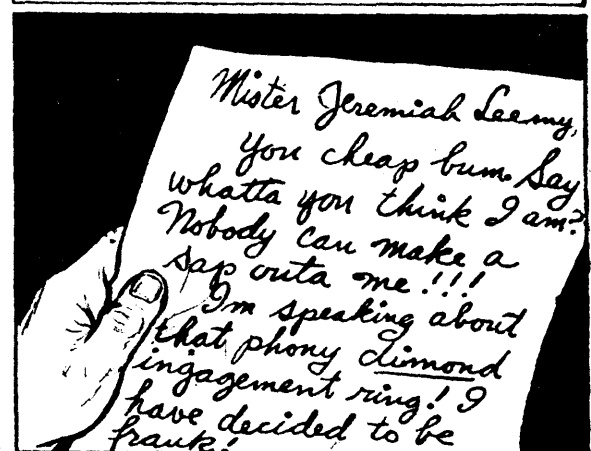 Mister Jeremiah Leemy,
You cheap bum. Say
whatta you think I am?
Nobody can make a
sap outa me!!!
I'm speaking about
that phony dimond
ingagement ring! I
have decided to be
frank!